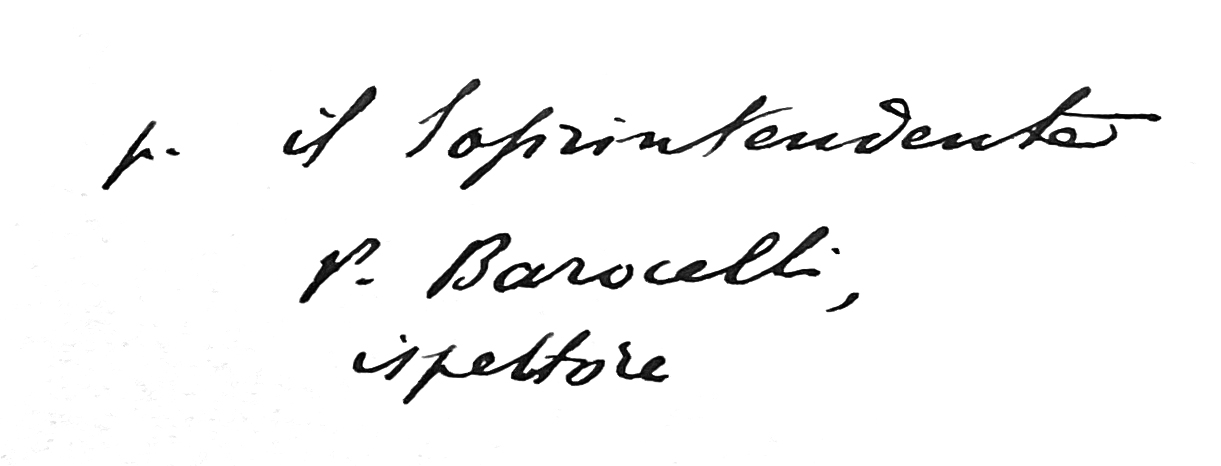 p. il Soprintendente
P. Barocelli,
ispettore